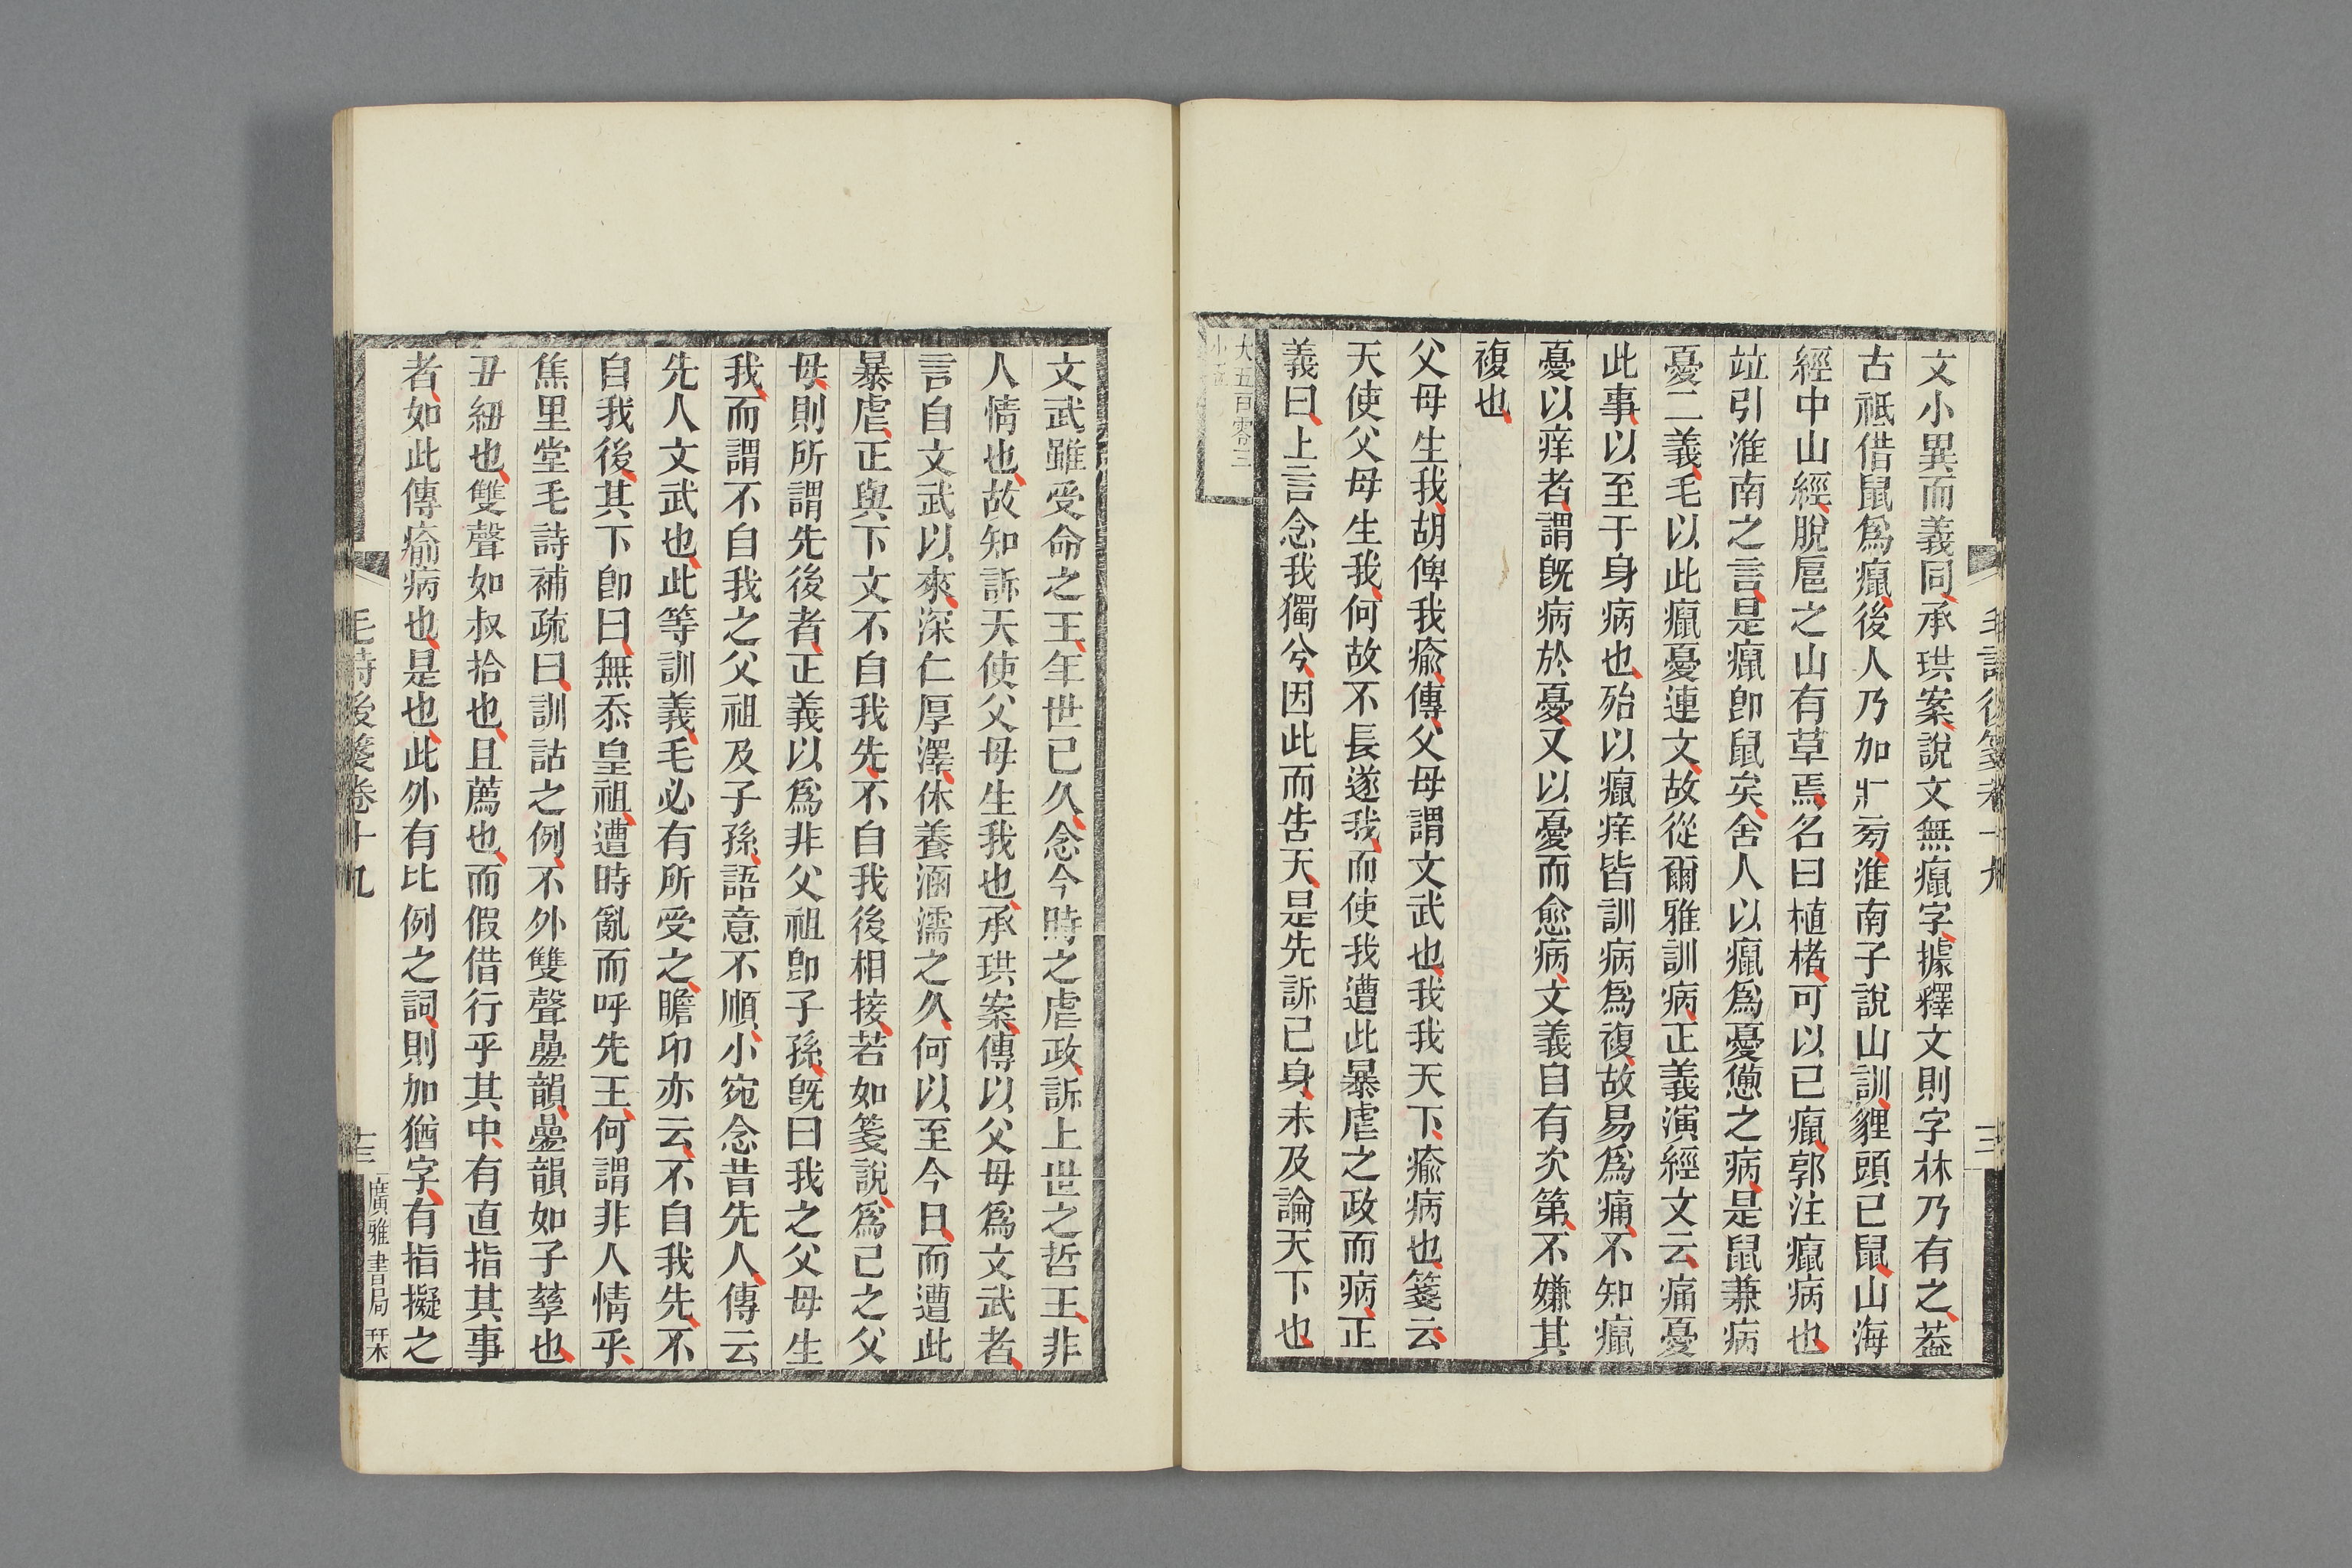 文小異而義同承珙案說文無癙字據釋文則字林乃有之葢
古祗借鼠爲癙後人乃加疒菊淮南子說山訓貍頭已鼠山海
經中山經脫扈之山有草焉名曰植楮可以已癙郭注癙病也
竝引淮南之言是癙卽鼠矣舍人以癙爲憂憊之病是鼠兼病
憂二義毛以此癙憂連文故從爾雅訓病正義演經文云痛憂
此事以至于身病也殆以癙痒皆訓病爲複故易爲痛不知癙
憂以痒者謂旣病於憂又以憂而愈病文義自有次第不嫌其
複也
父母生我胡俾我瘉傳父母謂文武也我我天下瘉病也箋云
天使父母生我何故不長遂我而使我遭此暴虐之政而病正
義曰上言念我獨兮因此而告天是先訴己身未及論天下也
大五百零三
毛詩後箋卷十九
文武雖受命之王年世已久念今時之虐政訴上世之哲王非
人情也故知訴天使父母生我也承珙案傳以父母爲文武者
言自文武以來深仁厚澤休養涵濡之久何以至今日而遭此
暴虐正與下文不自我先不自我後相接若如箋說爲己之父
母則所謂先後者正義以爲非父祖卽子孫旣曰我之父母生
我而謂不自我之父祖及子孫語意不順小宛念昔先人傳云
先人文武也此等訓義毛必有所受之瞻卬亦云不自我先不
自我後其下卽曰無忝皇祖遭時亂而呼先王何謂非人情乎
焦里堂毛詩補疏曰訓詁之例不外雙聲曡韻曡韻如子孳也
丑紐也雙聲如叔拾也且薦也而假借行乎其中有直指其事
者如此傳瘉病也是也此外有比例之詞則加猶字有指擬之
毛詩後箋卷十九
十三
廣雅書局栞